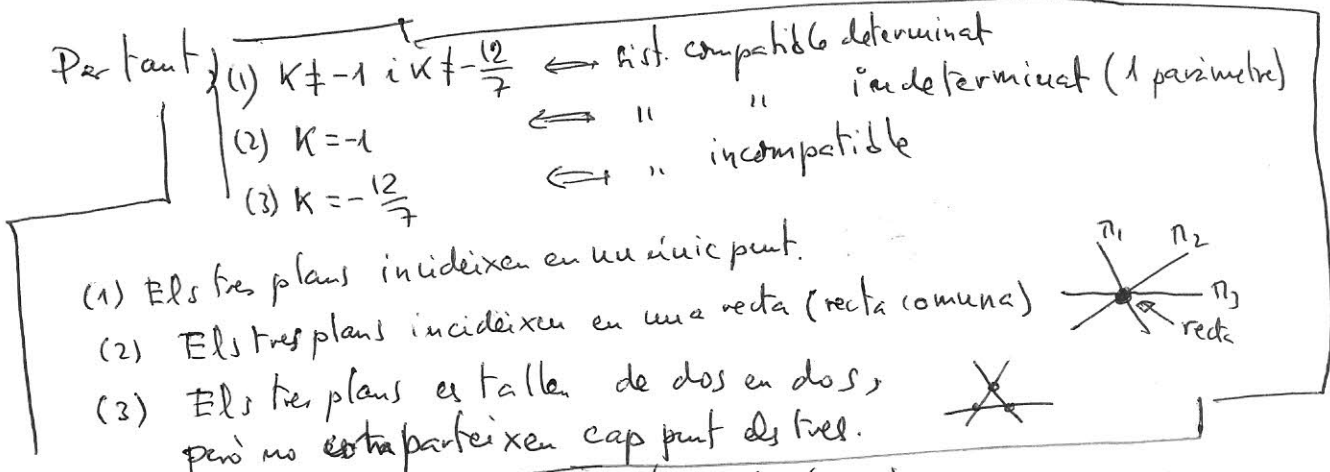 Per tant, (1) K ≠ -1 i K ≠ -12/7 ⟺ Sist. compatible determinat
(2) K = -1 ⟺ " " indeterminat (1 paràmetre)
(3) K = -12/7 ⟺ " incompatible
(1) Els tres plans incideixen en un únic punt.
(2) Els tres plans incideixen en una recta (recta comuna)
π1 π2 π3 recta
(3) Els tres plans es tallen de dos en dos,
però no comparteixen cap punt els tres.